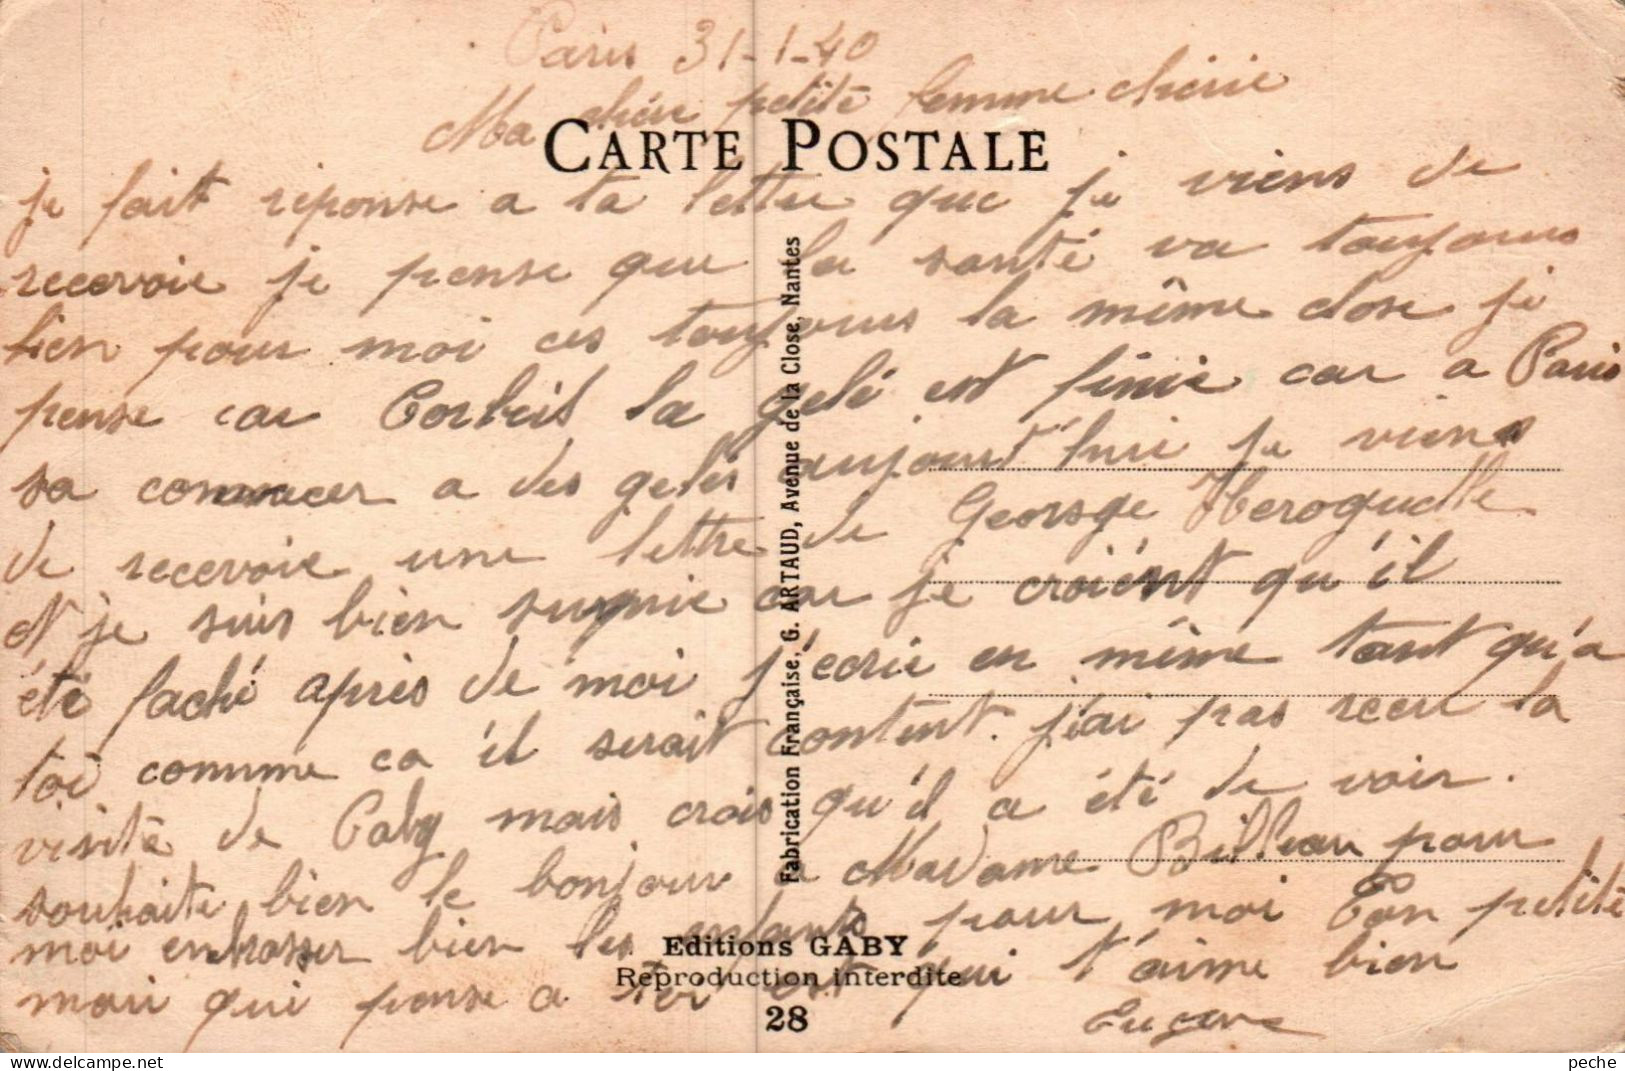 Paris 31-1-40
Ma chèr petite femme cherie
CARTE POSTALE
je fait réponse a ta lettre que je viens de
recevoie je pense que la santé va toujours
bien pour moi ces toujours la même close je
pense car Corbeil la gelé est finie car a Paris
sa commencer a des gelés aujourt'hui je viens
de recevoie une lettre de George Heroguelle
et je suis bien surprie car je croient qu'il
été faché après de moi j'écrie en même tant qu'a
toi comme ca il serait content. j'ai pas recu la
visite de Gaby mais crois qu'il a été de voir.
souhaite bien le bonjour a Madame Billeau pour
moi embrasser bien les enfants pour moi Ton petite
mari qui pense a toi et qui t'aime bien
Eugene
Fabrication Française, G. ARTAUD, Avenue de la Close, Nantes
Editions GABY
Reproduction interdite
28
peche